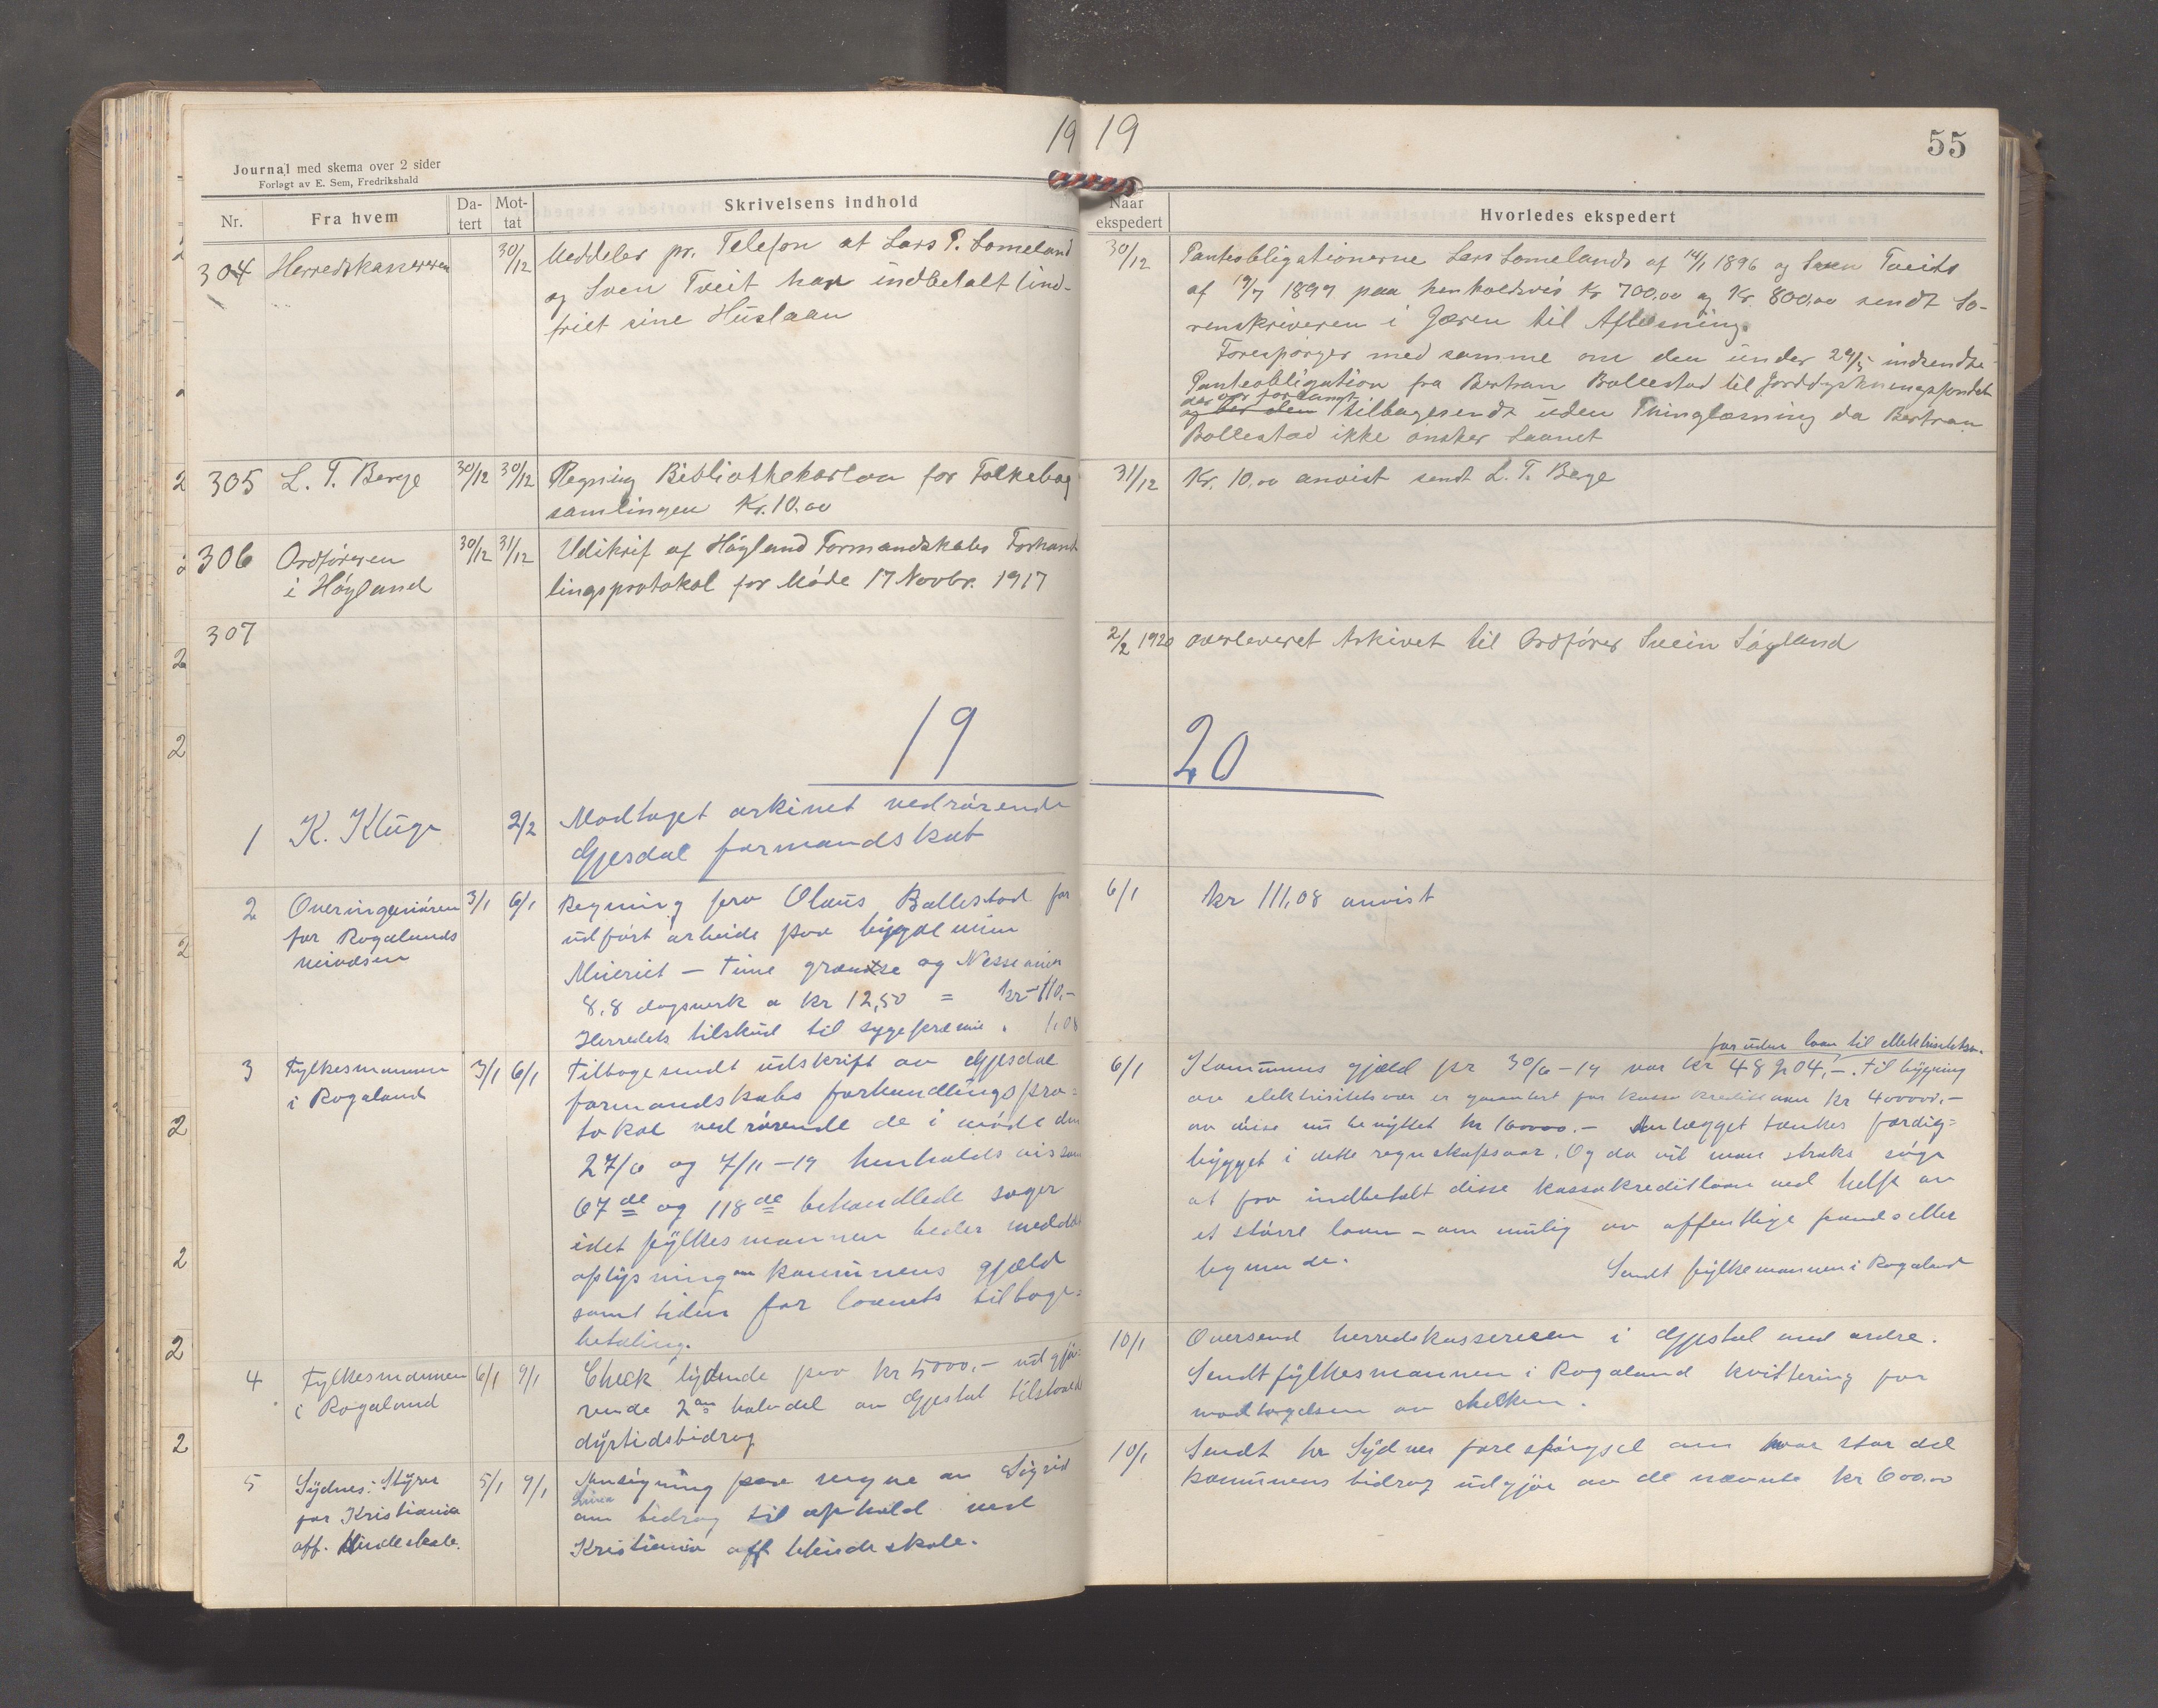 19 19
55
Journal med skema over 2 sider
Forlagt av E. Sem, Fredrikshald
Nr. Fra hvem Da-tert Mot-tat Skrivelsens indhold
Naar ekspedert Hvorledes ekspedert
304 Herredskasereren 30/12 Meddeler pr. Telefon at Lars P. Lomeland
og Sven Tveit har indbetalt (ind-
friet sine Huslaan
30/12 Panteobligationerne Lars Lomelands af 14/1 1896 og Sven Tveits
af 19/7 1897 paa henholdsvis Kr 700,00 og Kr. 800,00 sendt So-
renskriveren i Jæren til Aflæsning.
Forespørger med samme om den under 29/5 indsendte
Panteobligation fra Bertran Bollestad til Jorddyrkningsfondet
der var forlangt
og ber den tilbagesendt uden Thinglæsning da Bertran
Bollestad ikke ønsker Laanet
305 L. T. Berge 30/12 30/12 Regning Bibliothekarløn for Folkebog
samlingen Kr. 10.00
31/12 Kr. 10,00 anvist sendt L. T. Berge
306 Ordføreren 30/12 31/12 Udskrif af Høyland Formandskabs Forhand
i Høyland lingsprotokol for Møde 17 Novbr. 1917
307
2/2 1920 overleveret Arkivet til Ordfører Svein Søyland
19 20
1 K. Kluge 2/2 Modtaget arkivet vedrørende
Gjesdal formandskab
2 Overingeniøren 3/1 6/1 Regning fra Olaus Bollestad for
for Rogalands udført arbeide paa bygdeveien
veivæsen Meieriet – Time grænse og Nesseveien
8,8 dagsverk a kr 12,50 = kr 110,-
Herredets tilskud til sygepremie . 1,08
6/1 kr 111,08 anvist
3 Fylkesmannen 3/1 6/1 Tilbagesendt utskrift av Gjesdal
i Rogaland formandskabs forhandlingspro=
tokol vedrørende de i møde den
27/6 og 7/11 -19 henholdsvis som
67de og 118de behandlede sager
idet fylkesmannen beder meddelt
oplysning om kommunens gjæld
samt tiden for laanets tilbage=
betaling.
foruden laan til elektrisitetsv.
6/1 Kommunens gjæld pr 30/6 -19 var kr 48 04,-. Til bygning
av elektrisitetsver er garantert for kassakreditlaan kr 400000,-
av disse nu benyttet kr 160000.- Anlægget tænkes færdig=
bygget i dette regnskapsaar. Og da vil man straks søge
at faa indbetalt disse kassakreditlaan ved help av
et større laan – om mulig av offentlige fonds eller
lignende. Sendt fylkesmannen i Rogaland
4 Fylkesmannen 6/1 9/1 Check lydende paa kr 5000,- udgjø=
i Rogaland rende 2den halvdel av Gjesdal tilstaaede
dyrtidsbidrag
10/1 Oversend herredskassereren i Gjesdal med ordre.
Sendt fylkesmannen i Rogaland kvittering for
modtagelsen av chekken.
5 Sydnes: Styrer 5/1 9/1 Ansøgning paa vegne av Sigrid
for Kristiania om bidrag til ophold ved
off. blindeskole. Kristiania off blindeskole.
10/1 Sendt hr Sydnes forespørgsel om hvor stor del
kommunens bidrag udgjør av de nævnte kr 600.00